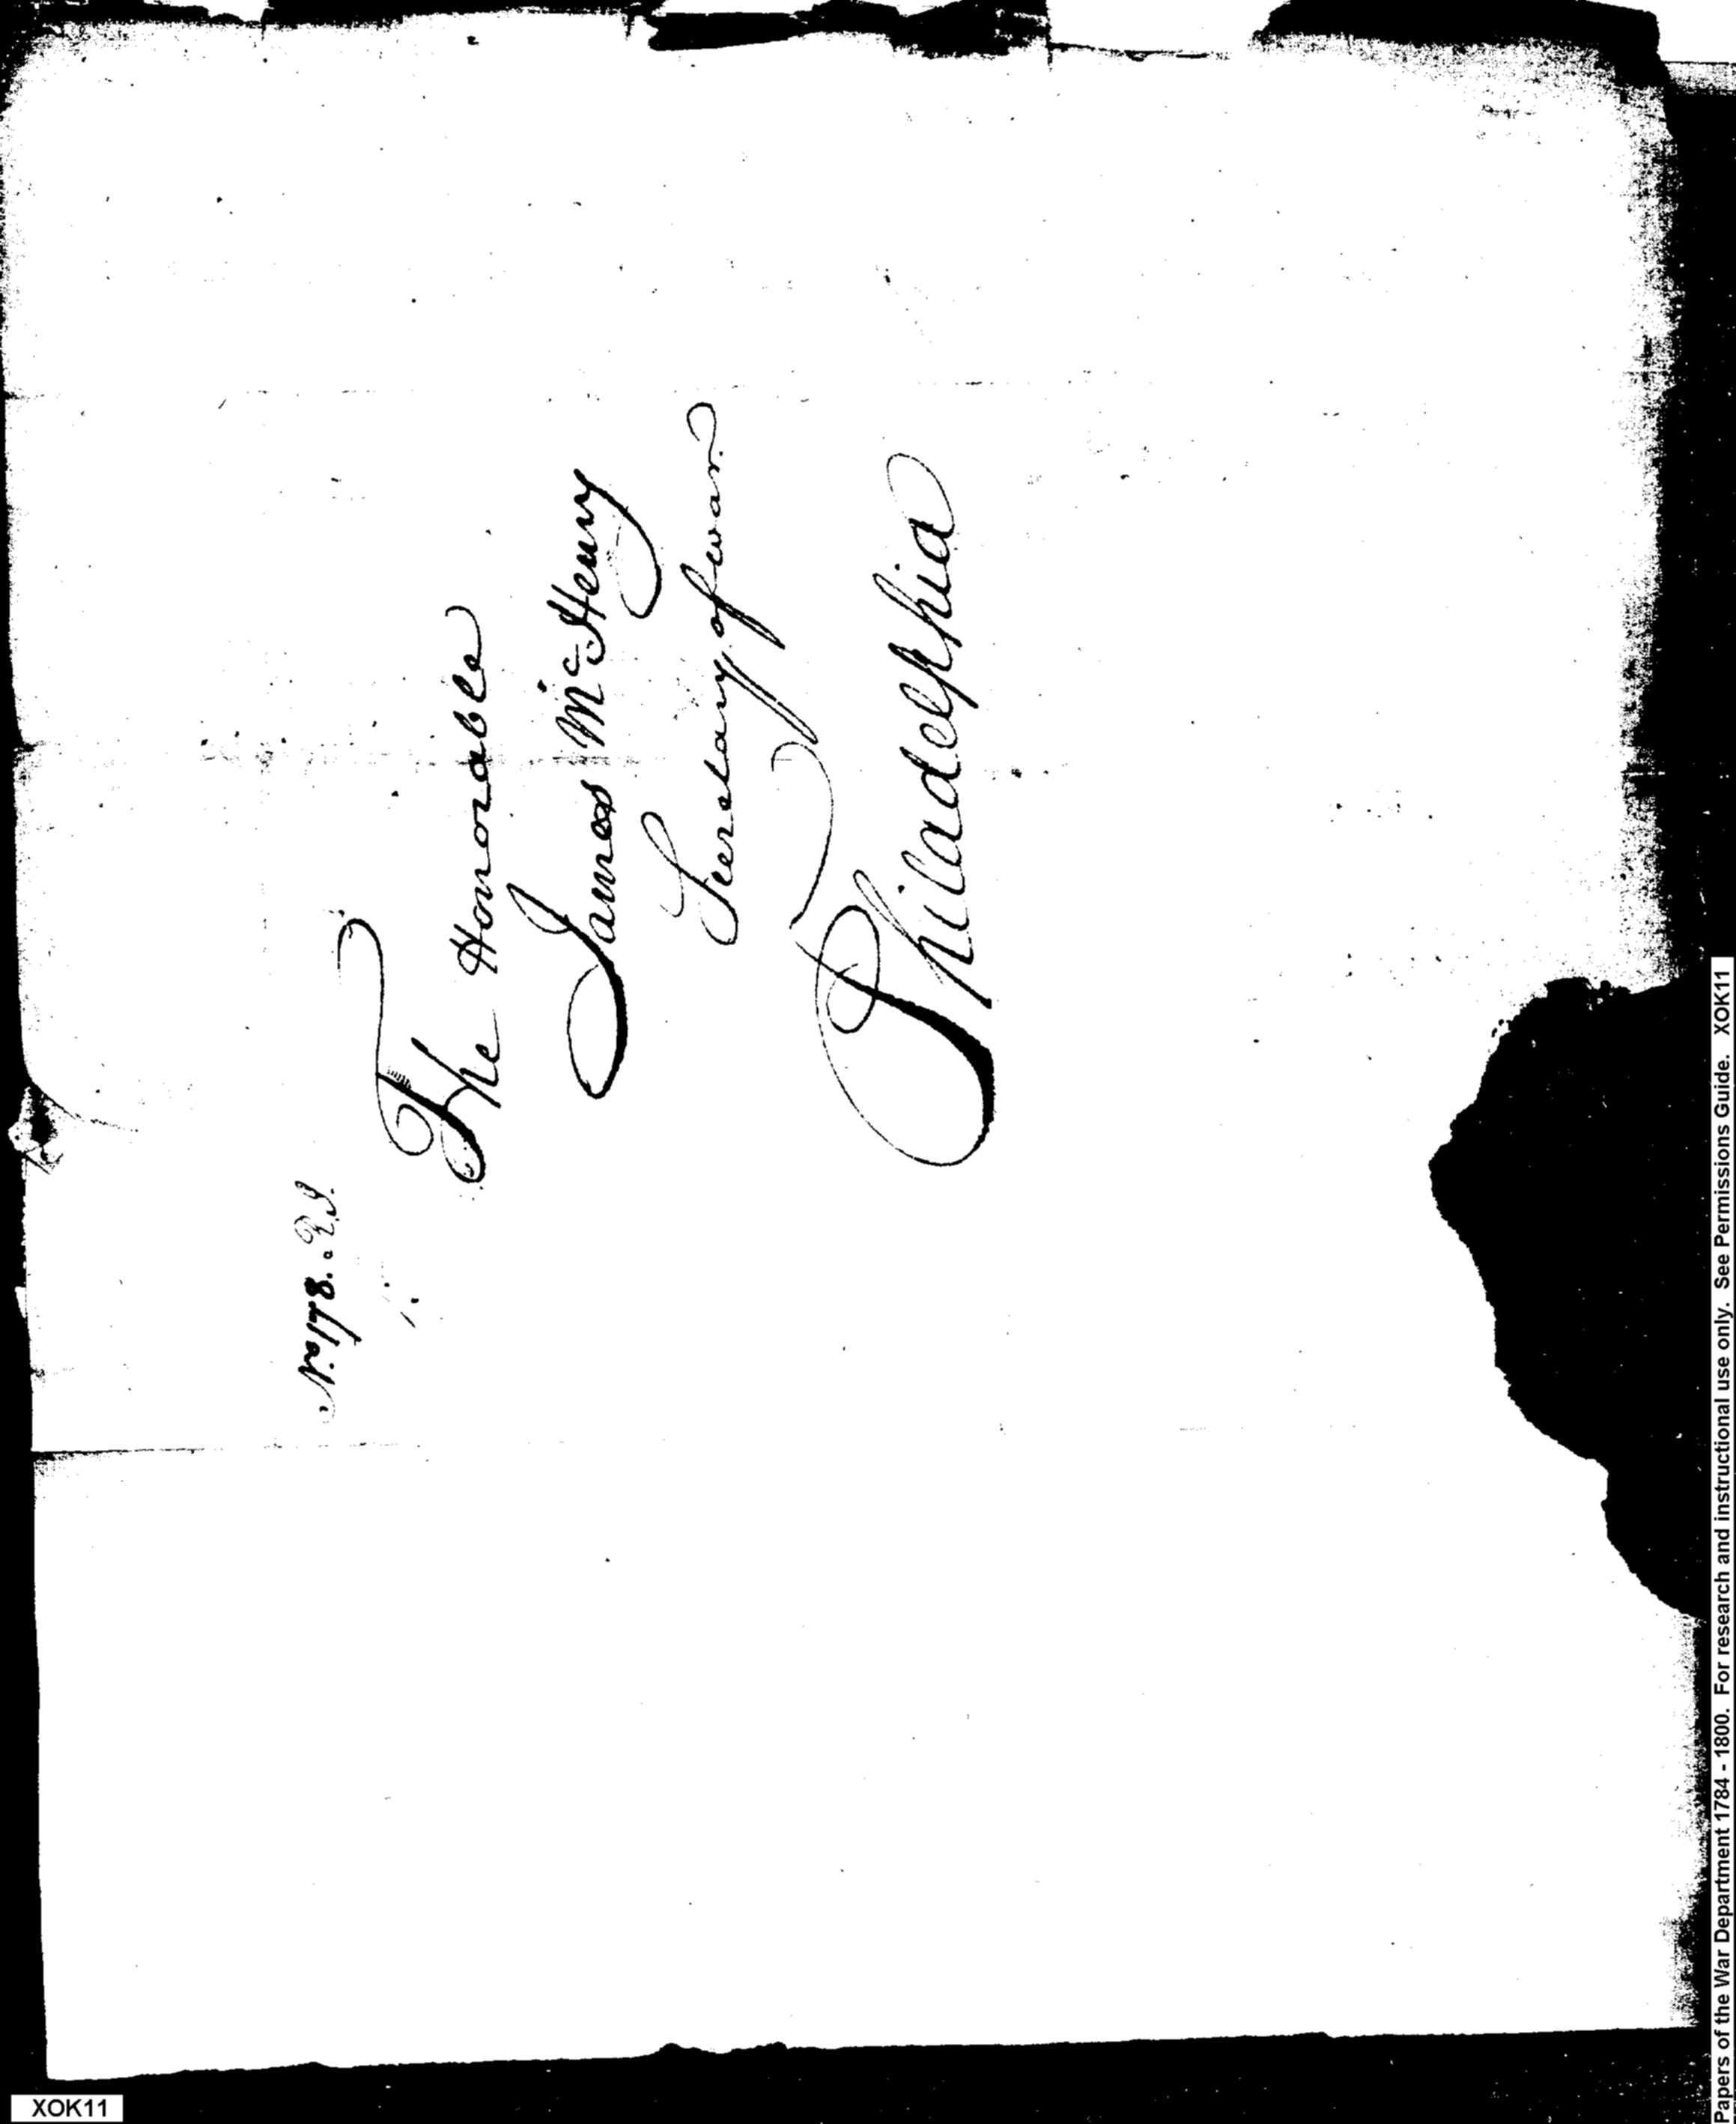 No. 178. R.I.
The Honorable
James McHenry
Secretary of war.
Philadelphia
Papers of the War Department 1784 - 1800. For research and instructional use only. See Permissions Guide. XOK11
XOK11